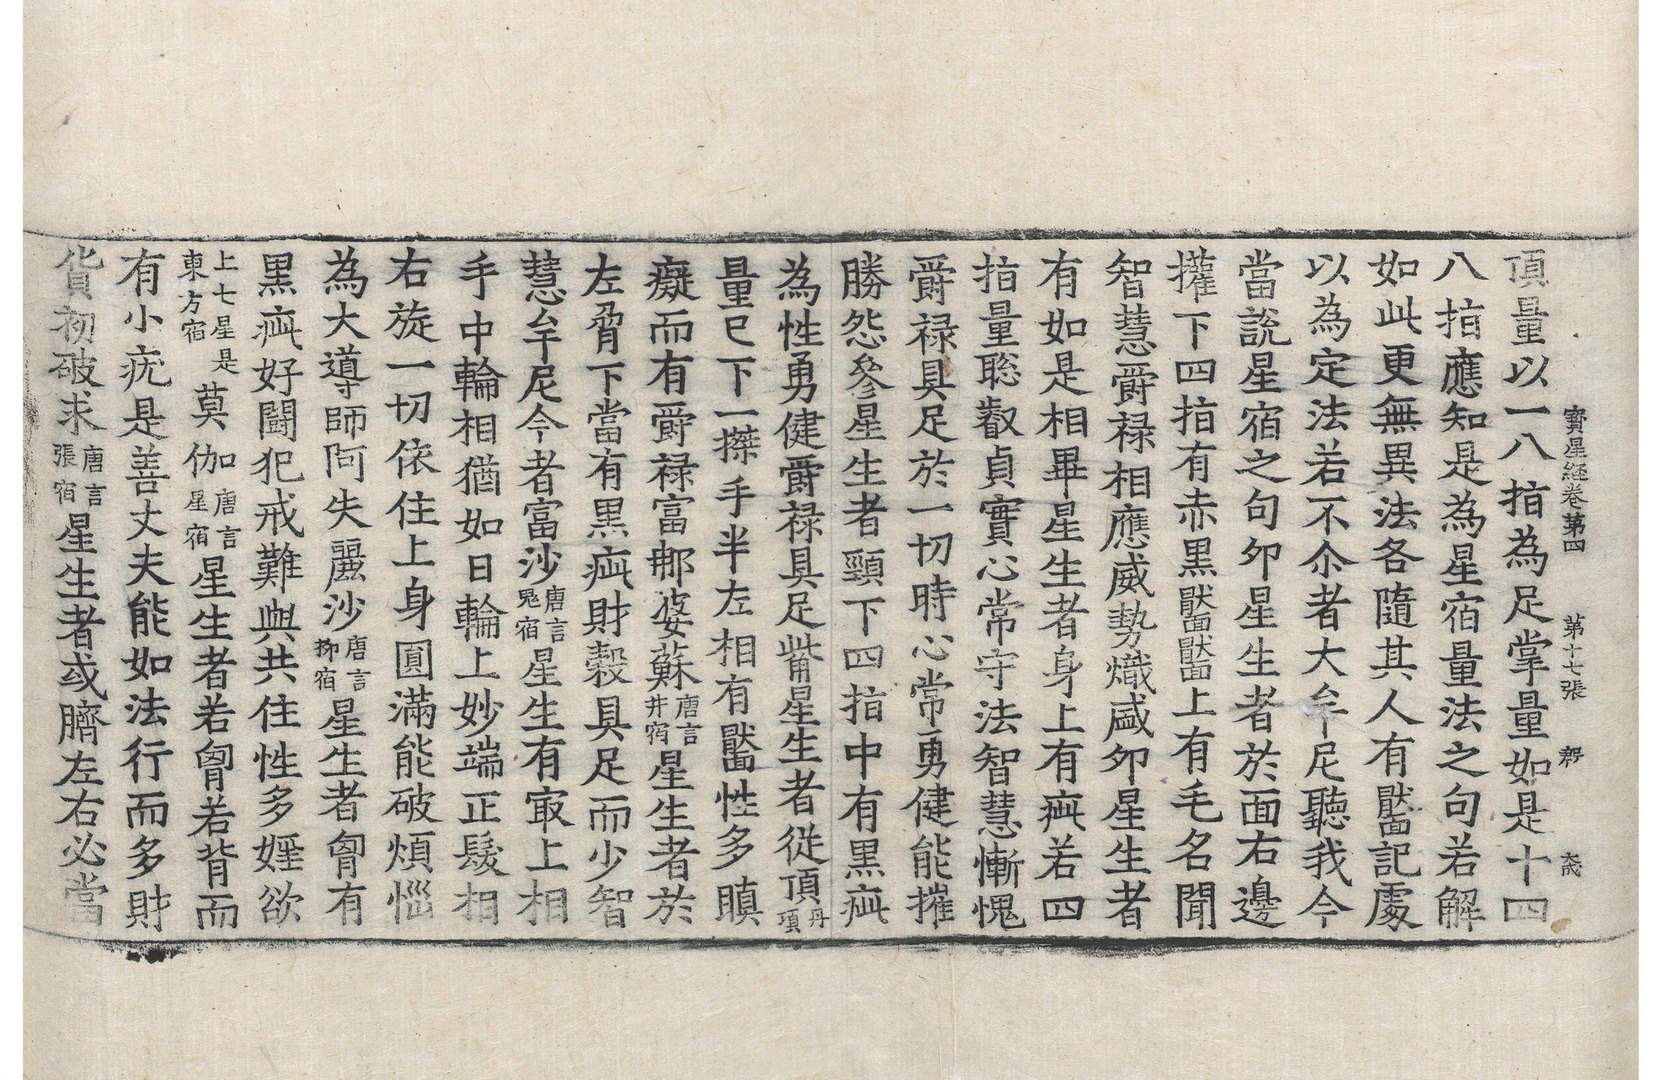 寶星経卷第四 第十七張
頂量以一八指為足掌量如是十四
八指應知是為星宿量法之句若解
如此更無異法各隨其人有黶記處
以為定法若不尒者大牟尼聽我今
當說星宿之句夘星生者於面右邊
攉下四指有赤黑黶黶上有毛名聞
智慧爵禄相應威勢熾盛夘星生者
有如是相畢星生者身上有疵若四
指量聡叡貞實心常守法智慧慚愧
爵禄具足於一切時心常勇健能摧
勝怨參星生者頸下四指中有黒疵
為性勇健爵禄具足觜星生者従頂丹項
量已下一搩手半左相有黶性多瞋
癡而有爵禄富那婆蘇唐言井宿星生者於
左脅下當有黑疵財穀具足而少智
慧牟尼今者富沙唐言鬼宿星生有㝡上相
手中輪相猶如日輪上妙端正髮相
右旋一切依住上身圎滿能破煩惱
為大導師阿失麗沙唐言柳宿星生者胷有
黒疵好鬪犯戒難與共住性多婬欲
上七星是東方宿莫伽唐言星宿星生者若胷若背而
有小疣是善丈夫能如法行而多財
貨初破求唐言張宿星生者或臍左右必當